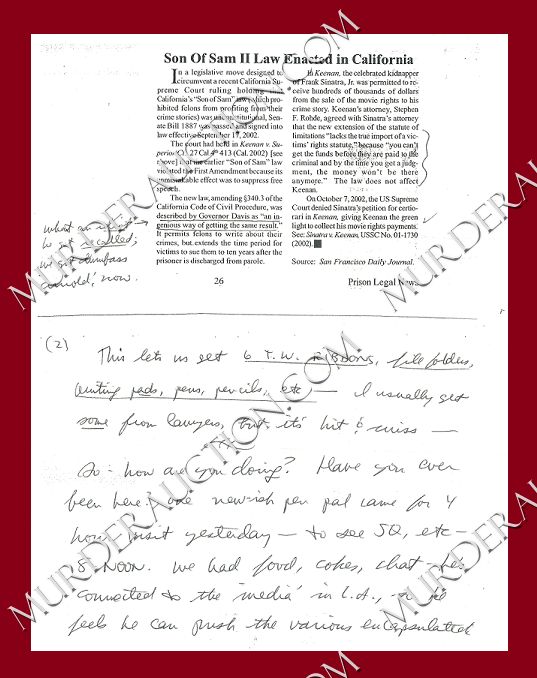 Son Of Sam II Law Enacted in California
In a legislative move designed to
circumvent a recent California Su-
preme Court ruling holding that
California's "Son of Sam" law (which pro-
hibited felons from profiting from their
crime stories) was unconstitutional, Sen-
ate Bill 1887 was passed and signed into
law effective September 17, 2002.
The court had held in Keenan v. Su-
perior 27 Cal. 4th 413 (Cal. 2002) [see
above] that an earlier "Son of Sam" law
violated the First Amendment because its
unmistakable effect was to suppress free
speech.
The new law, amending §340.3 of the
California Code of Civil Procedure, was
described by Governor Davis as "an in-
genious way of getting the same result."
It permits felons to write about their
crimes, but extends the time period for
victims to sue them to ten years after the
prisoner is discharged from parole.
In Keenan, the celebrated kidnapper
of Frank Sinatra, Jr. was permitted to re-
ceive hundreds of thousands of dollars
from the sale of the movie rights to his
crime story. Keenan's attorney, Stephen
F. Rohde, agreed with Sinatra's attorney
that the new extension of the statute of
limitations "lacks the true import of a vic-
tims' rights statute," because "you can't
get the funds before they are paid to the
criminal and by the time you get a judg-
ment, the money won't be there
anymore." The law does not affect
Keenan.
On October 7, 2002, the US Supreme
Court denied Sinatra's petition for certio-
rari in Keenan, giving Keenan the green
light to collect his movie rights payments.
See: Sinatra v. Keenan, USSC No. 01-1730
(2002).
Source: San Francisco Daily Journal.
26
Prison Legal News
what an
he got recalled;
we got dumbass
now.
(2)
This lets us get 6 T.W. ribbons, file folders,
writing pads, pens, pencils, etc — I usually get
some from lawyers, but it's hit & miss —
So - how are you doing? Have you ever
been here? one new-ish pen pal came for 4
hour visit yesterday — to see SQ, etc —
8-Noon. We had food, cokes, chat - he's
connected to the 'media' in L.A., he
feels he can push the various encapsulated
MURDERAUCTION.COM